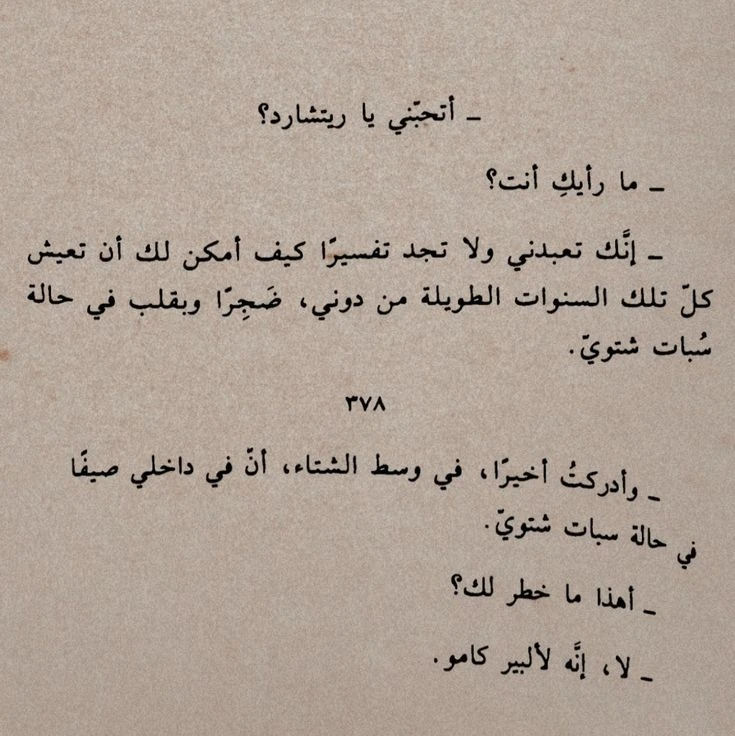 ـ أتحبّني يا ريتشارد؟
ـ ما رأيكِ أنت؟
ـ إنَّك تعبدني ولا تجد تفسيرًا كيف أمكن لك أن تعيش
كلّ تلك السنوات الطويلة من دوني، ضَجِرًا وبقلب في حالة
سُبات شتويّ.
٣٧٨
ـ وأدركتُ أخيرًا، في وسط الشتاء، أنّ في داخلي صيفًا
في حالة سبات شتويّ.
ـ أهذا ما خطر لك؟
ـ لا، إنَّه لألبير كامو.